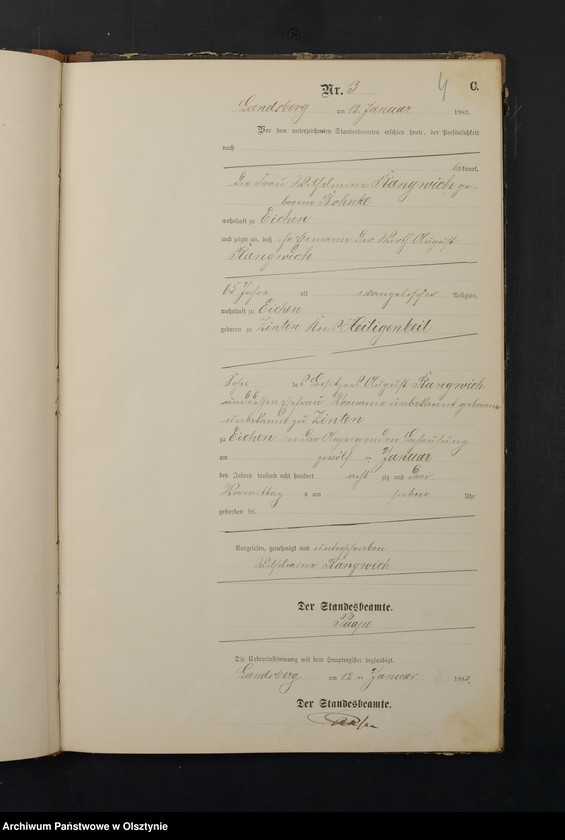 4 C.
Nr. 3
Landsberg am 12. Januar 1883.
Vor dem unterzeichneten Standesbeamten erschien heute, der Persönlichkeit
nach
bekannt,
die Frau Wilhelmine Kangwich ge-
borene Böhnke
wohnhaft zu Eichen
und zeigte an, daß ihr Ehemann der Wirth August
Kangwich
65 Jahre alt evangelischer Religion,
wohnhaft zu Eichen
geboren zu Zinten Heiligenbeil
Sohn des Besitzers August Kangwich
und dessen Ehefrau Vorname unbekannt geborene
unbekannt zu Zinten
zu Eichen in der Behausung
am zwölf ten Januar
des Jahres tausend acht hundert acht zig und drei
Vormittag s um sieben Uhr
gestorben sei.
Vorgelesen, genehmigt und unterschrieben
Wilhelmine Kangwich
Der Standesbeamte.
Die Uebereinstimmung mit dem Hauptregister beglaubigt.
Landsberg am 12 ten Januar 1883.
Der Standesbeamte.
Archiwum Państwowe w Olsztynie